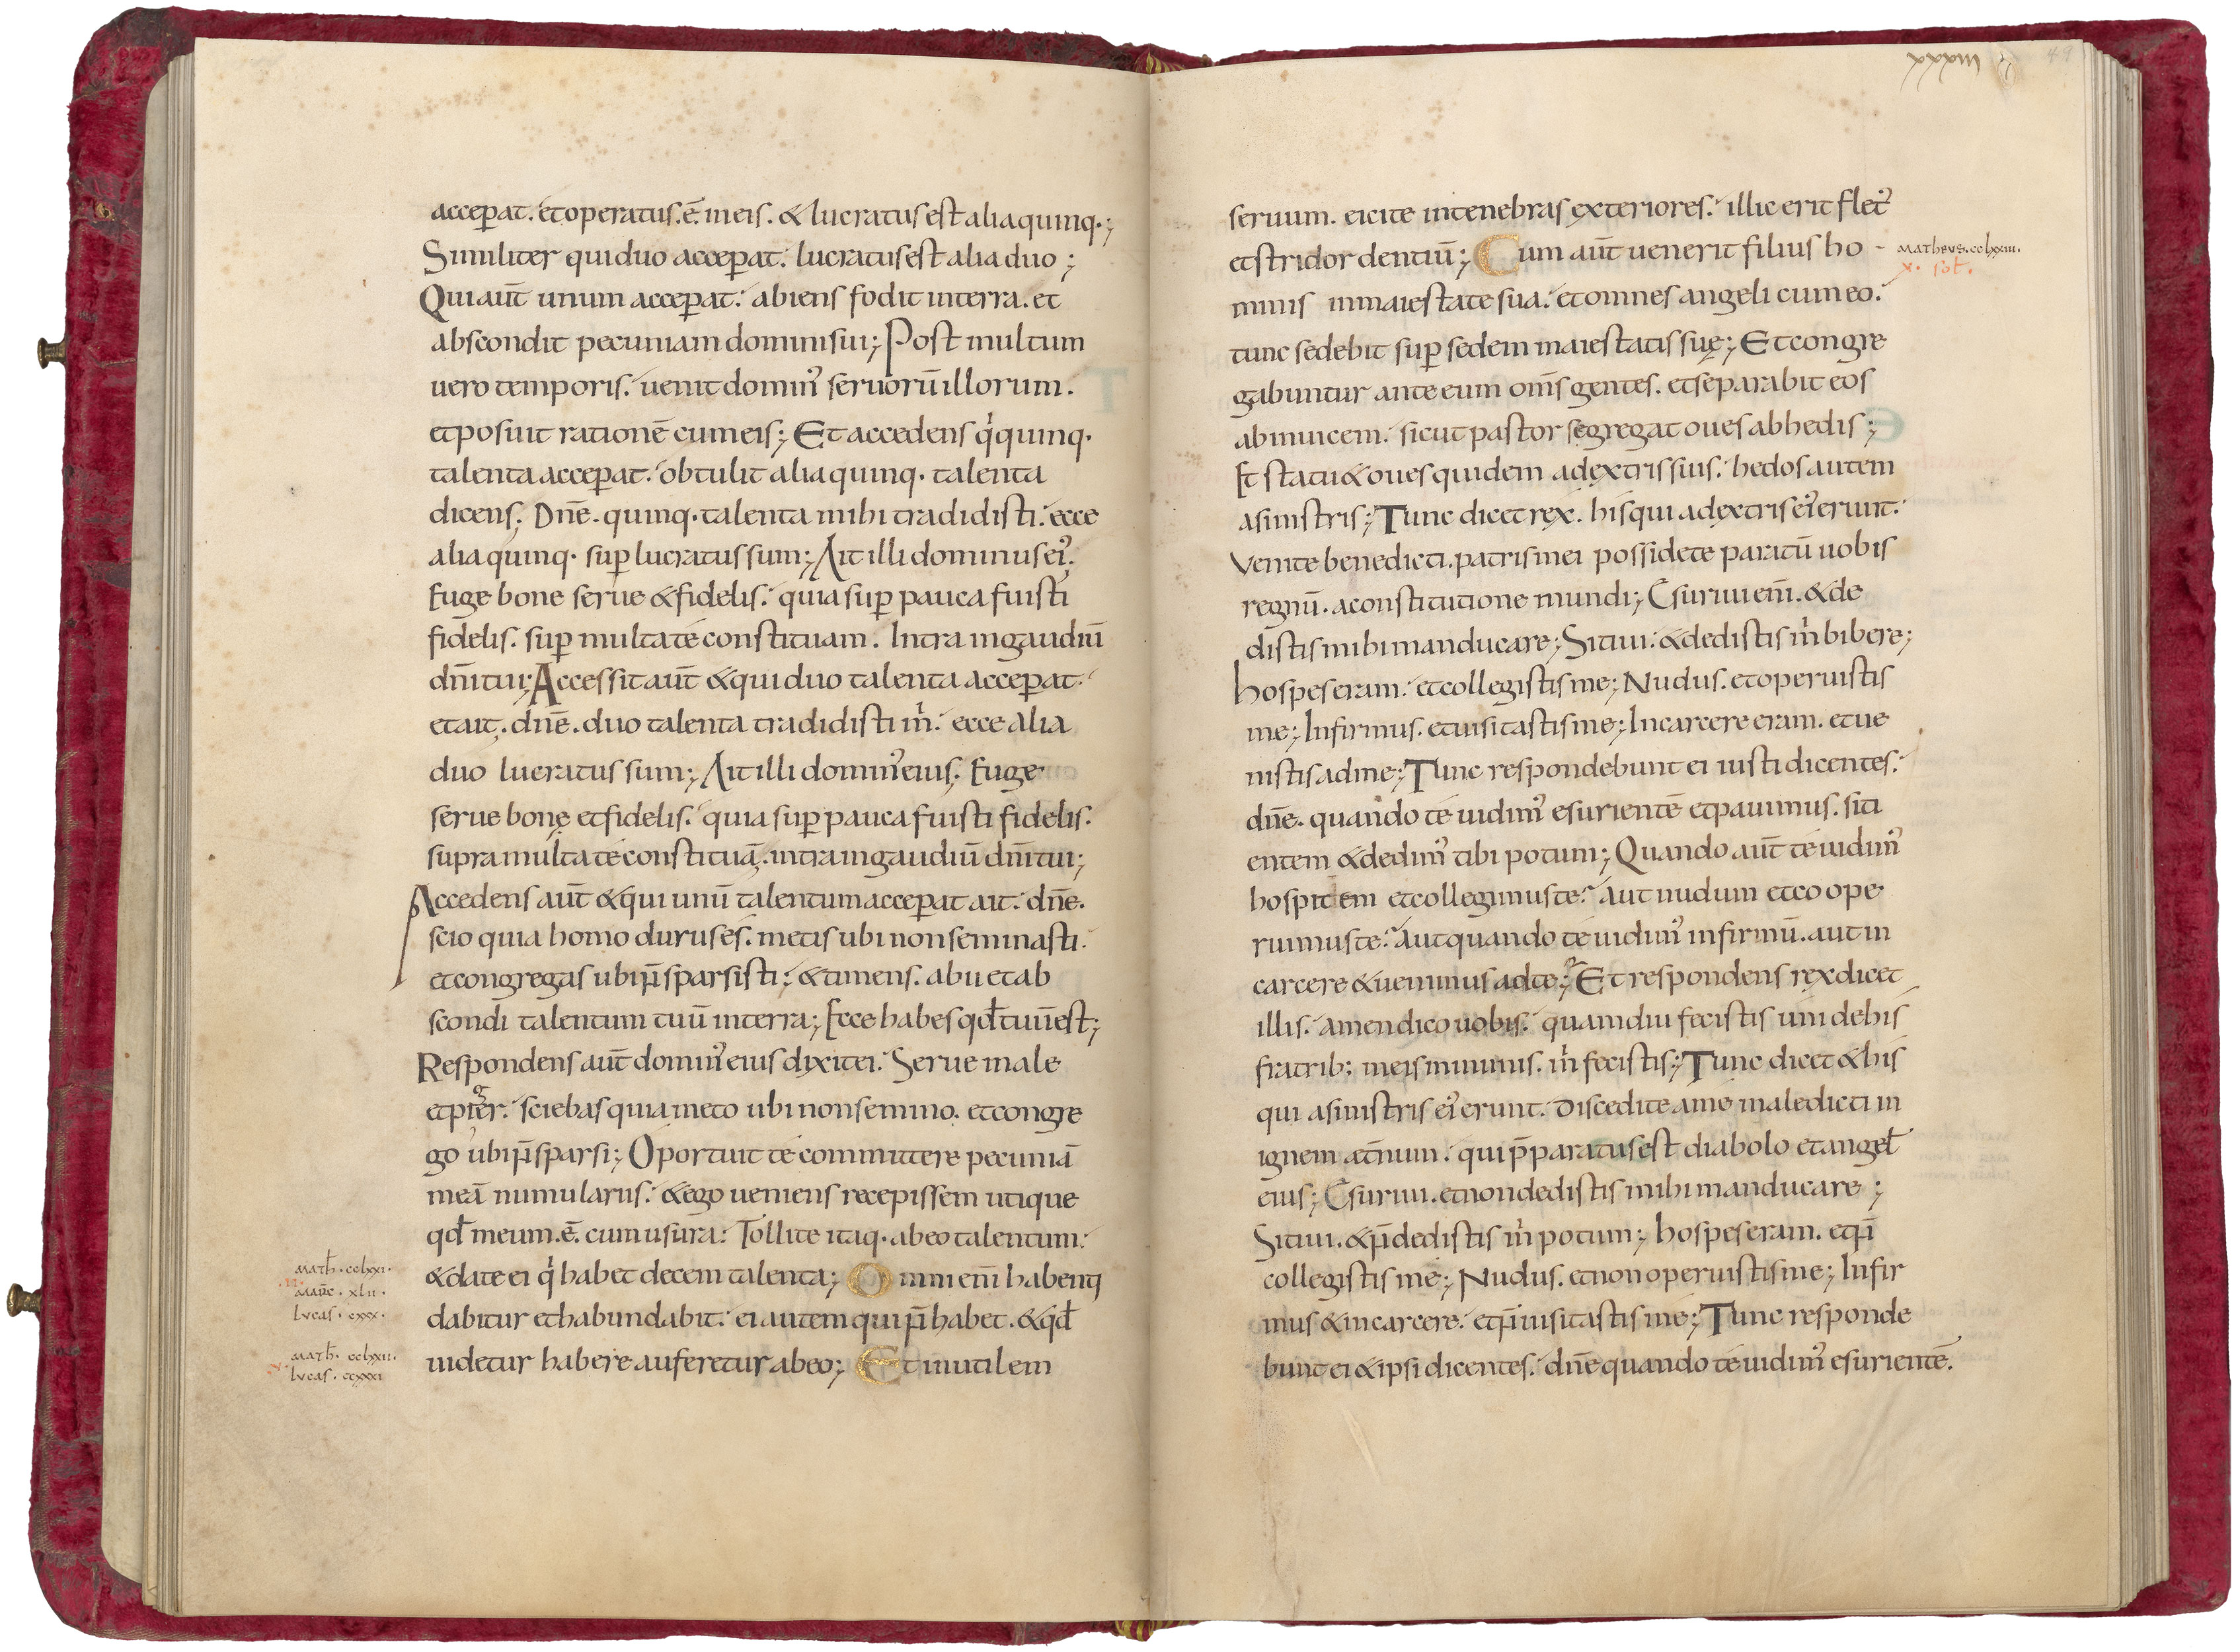 acceperat. et operatus. ē. in eis. & lucratus est alia quinq·;
Similiter qui duo acceperat. lucratus est alia duo;
Qui aūt unum acceperat. abiens fodit interra. et
abscondit pecuniam domini sui; Post multum
uero temporis. uenit domin᾿ seruorū illorum.
et posuit rationē cum eis; Et accedens q̇ quinq·
talenta acceperat. obtulit alia quinq· talenta
dicens. Dn̄e. quinq· talenta mihi tradidisti. ecce
alia quinq· sup̄ lucratus sum; Ait illi dominus ei᾿.
Euge bone serue & fidelis. quia sup̄ pauca fuisti
fidelis. sup̄ multa té constituam. Intra ingaudiū
dn̄i tui; Accessit aūt & qui duo talenta acceperat.
et ait. dn̄e. duo talenta tradidisti ṁ. ecce alia
duo lucratus sum; Ait illi domin᾿ eius. Euge
serue bonę et fidelis. quia sup̄ pauca fuisti fidelis.
supra multa té constituā. intra ingaudiū dn̄i tui;
Accedens aūt & qui unū talentum acceperat ait. dn̄e.
scio quia homo durus és. metis ubi non seminasti.
et congregas ubi n̄ sparsisti; & timens. abii et ab
scondi talentum tuū interra; Ecce habes qđ tuū est;
Respondens aūt domin᾿ eius dixit ei. Serue male
et piger. sciebas quia meto ubi non semino. et congre
go ubi n̄ sparsi; Oportuit té committere pecuniā
meā numulariis. & ego ueniens recepissem utique
qđ meum. ē. cum usura. Tollite itaq· abeo talentum.
Math̄. cclxxi.
& date ei q̇ habet decem talenta; Omni enī habenti
Marc̄. xlii.
Lucas. cxxx.
dabitur et habundabit. ei autem qui n̄ habet. & qđ
Math̄. cclxxii.
uidetur habere auferetur abeo; Et inutilem
Lucas. ctxxxi
lxxxiii
49
seruum. eicite intenebras exteriores. illic erit flet᾿
et stridor dentiū; Cum aūt uenerit filius ho-
Matheus. cclxxiii.
x. sol.
minis inmaiestate sua. et omnes angeli cum eo.
tunc sedebit sup̄ sedem maiestatis suę; Et congre
gabuntur ante eum om̄s gentes. et separabit eos
abinuicem. sicut pastor segregat oues abhedis;
Et statu& oues quidem adextris suis. hedos autem
asinistris; Tunc dicet rex. his qui adextris ei᾿ erunt.
Venite benedicti. patris mei possidete paratū uobis
regnū. aconstitutione mundi; Esuriui enī. & de
distis mihi manducare; Sitiui. & dedistis ṁ bibere;
hospes eram. et collegistis me; Nudus. et operuistis
me; Infirmus. et uisitastis me; Incarcere eram. et ue
nistis adme; Tunc respondebunt ei iusti dicentes.
dn̄e. quando té uidim᾿ esurientē et pauimus. siti
entem & dedim᾿ tibi potum; Quando aūt té uidim᾿
hospitem et collegimus te. Aut nudum et coope
ruimus te. Aut quando té uidim᾿ infirmū. aut in
carcere & uenimus adte; Et respondens rex dicet
illis. Amen dico uobis. quamdiu fecistis uni de his
fratrib; meis minimis. ṁ fecistis; Tunc dicet & his
qui asinistris ei᾿ erunt. Discedite ame maledicti in
ignem ætn̄um. qui p̄paratus est diabolo et angeł
eius; Esuriui. et non dedistis mihi manducare;
Sitiui. & n̄ dedistis ṁ potum; hospes eram. et n̄
collegistis me; Nudus. et non operuistis me; Infir
mus & incarcere. et n̄ uisitastis me; Tunc responde
bunt ei & ipsi dicentes. dn̄e quando té uidim᾿ esurientē.